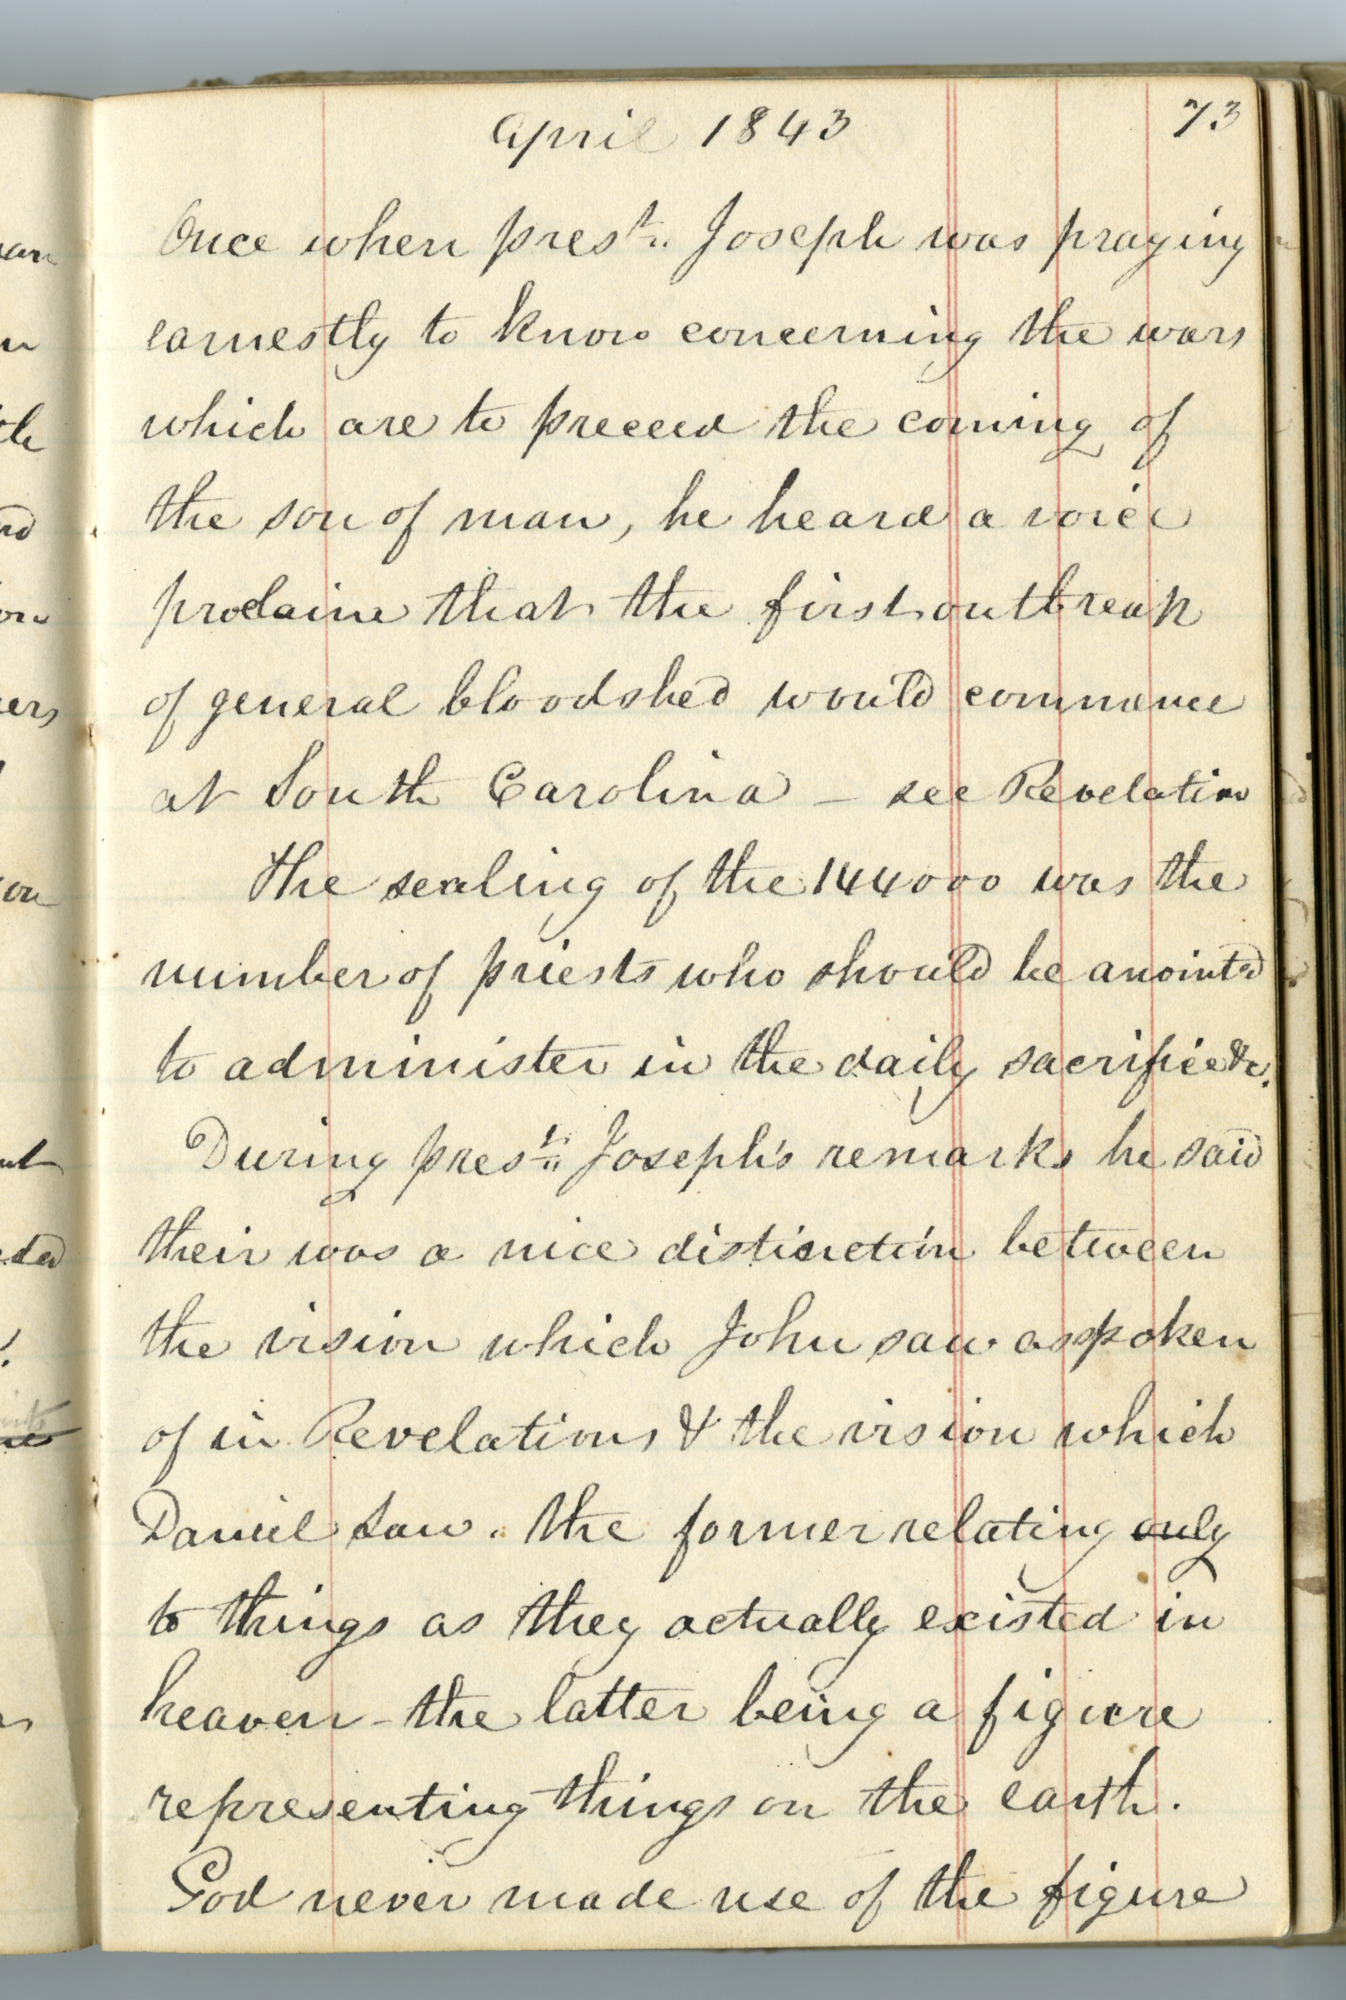 April 1843 73
Once when prest. Joseph was praying
earnestly to know concerning the wars
which are to preceed the coming of
the son of man, he heard a voice
proclaime that the first outbreak
of general bloodshed would commence
at South Carolina — see Revelation
The sealing of the 144000 was the
number of priests who should be anointed
to administer in the daily sacrifice &c.
During prest. Joseph's remarks he said
their was a nice distinction between
the vision which John saw as spoken
of in Revelations & the vision which
Daniel saw. the former relating only
to things as they actually existed in
heaven - the latter being a figure
representing things on the earth.
God never made use of the figure